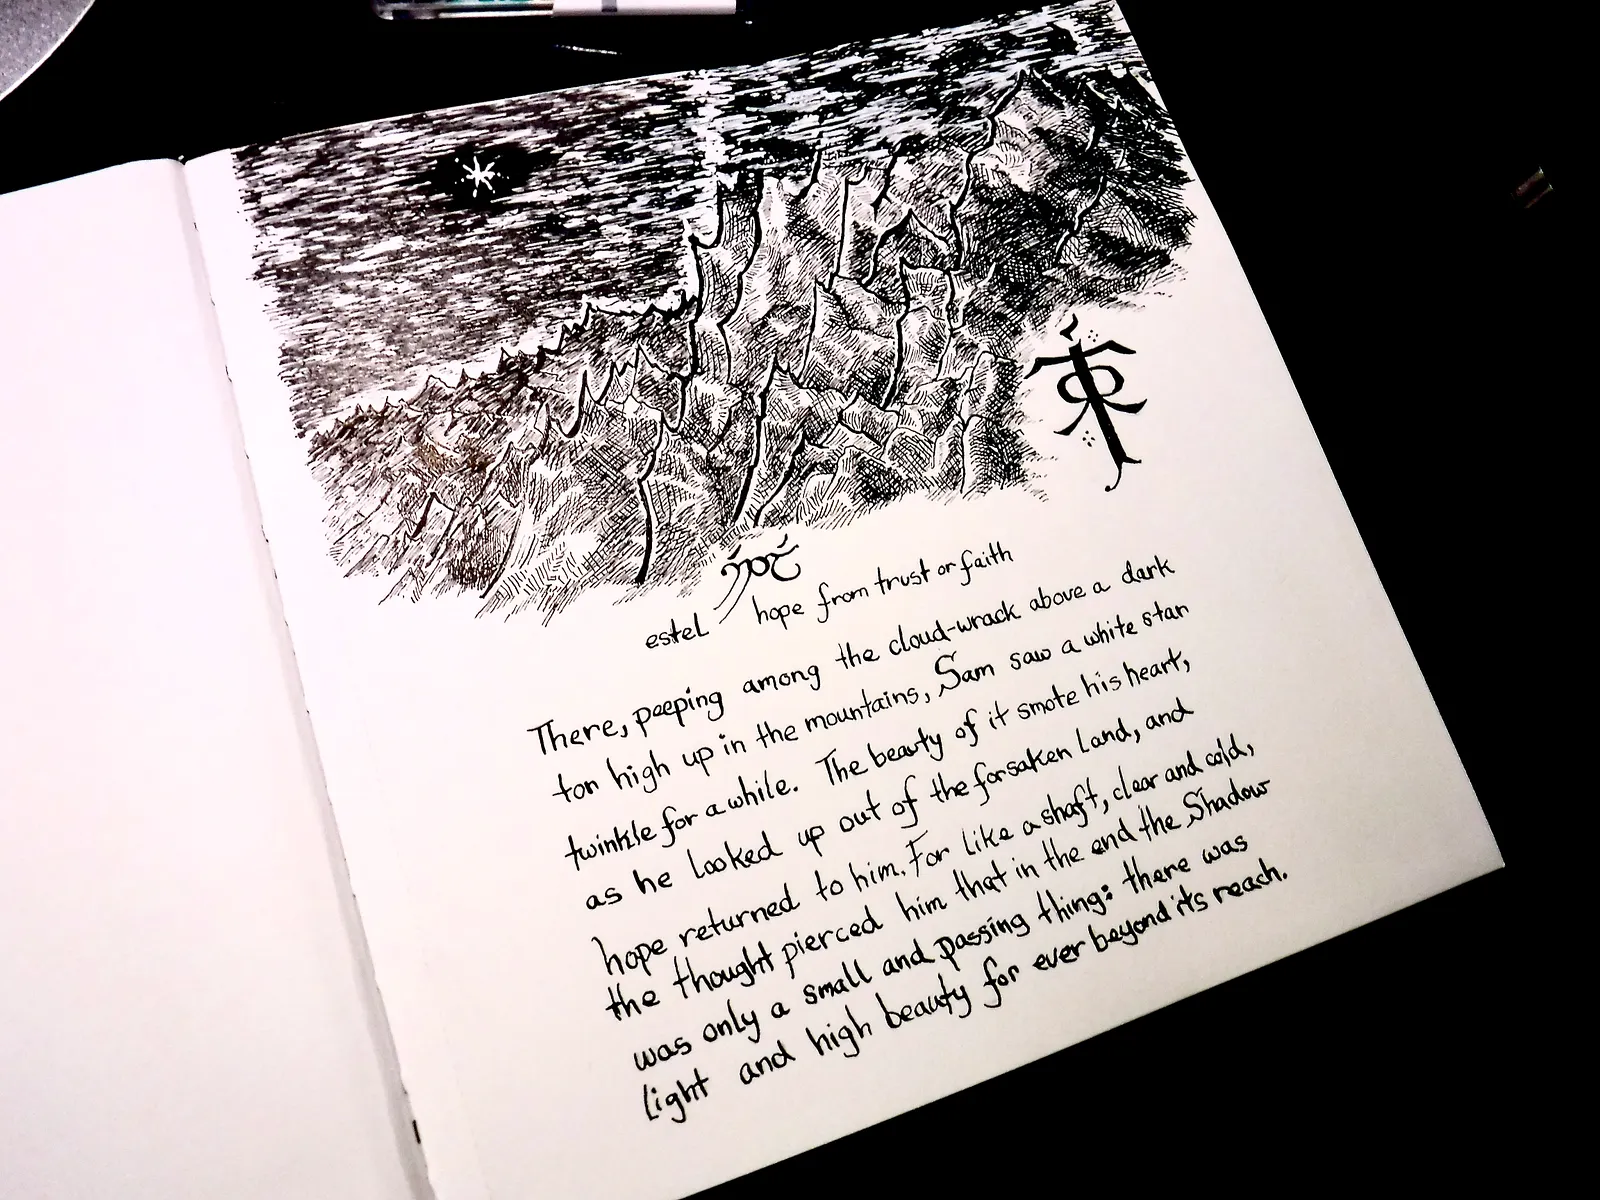 estel hope from trust or faith
There, peeping among the cloud-wrack above a dark
tor high up in the mountains, Sam saw a white star
twinkle for a while. The beauty of it smote his heart,
as he looked up out of the forsaken land, and
hope returned to him. For like a shaft, clear and cold,
the thought pierced him that in the end the Shadow
was only a small and passing thing: there was
light and high beauty for ever beyond its reach.